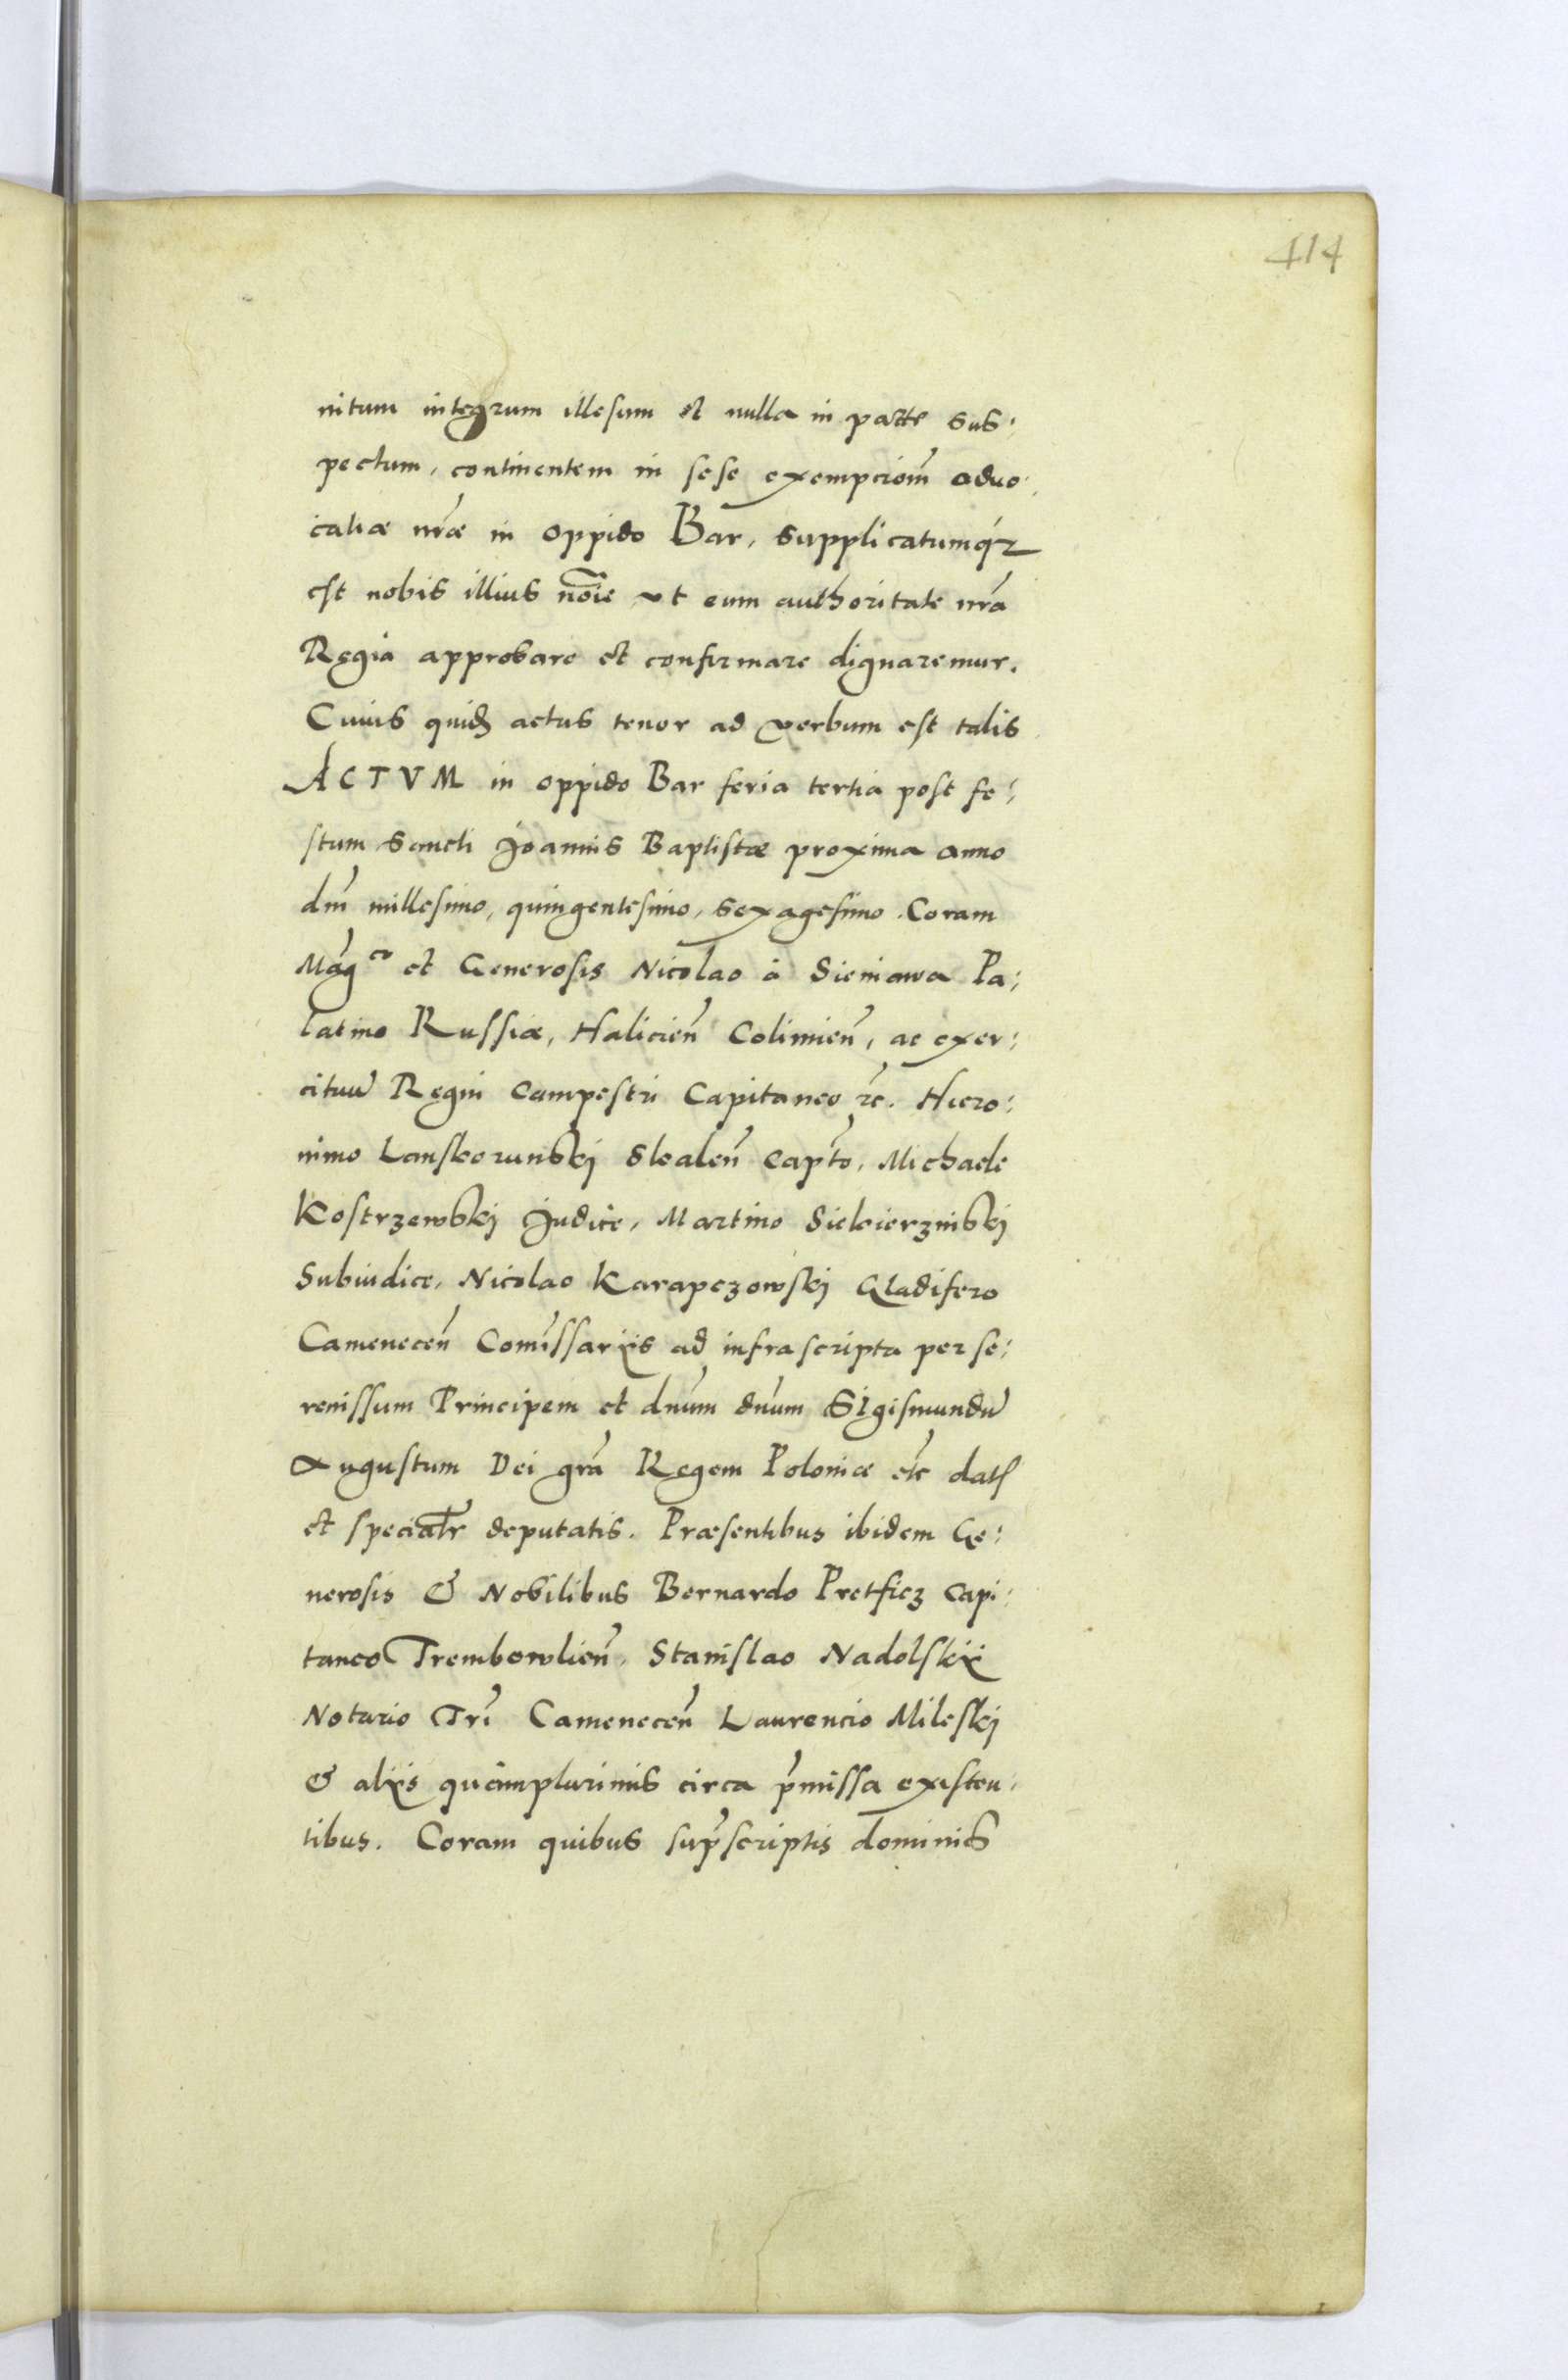 414
nitum integrum illesum et nulla in parte sus:
pectum, continentem in sese exempciom̄ aduo:
catiæ nr̄æ in oppido Bar, supplicatumq́z
est nobis illius noīe vt eum authoritate nr̄a
Regia approbare et confirmare dignaremur.
Cuius quidẽ actus tenor ad verbum est talis
ACTVM in oppido Bar feria tertia post fe:
stum Sancti Joannis Baptistæ proxima anno
dnī millesimo, quingentesimo, sexagesimo. Coram
Mag̃co et Generosis Nicolao à Sieniawa Pa:
latino Russiæ, Halicien̄ Colimien̄, ac exer:
cituū Regni Campestri Capitaneo rc̄. Hiero:
nimo Lanskorunskj Skalen̄ Capt̄o, Michaele
Kostrzewskj Judice, Martino Siekierzinskj
Subiudice, Nicolao Karapczowskj Gladifero
Camenecen̄ Com̄issarijs ad infrascripta per se:
renissum Principem et dn̄um dn̄um Sigismundū
Augustum Dei gr̄a Regem Poloniæ etc̄ dat̃
et specialr̄ deputatis. Præsentibus ibidem Ge:
nerosis & Nobilibus Bernardo Pretficz Capi:
taneo Trembowlien̄, Stanislao Nadolskij
Notario Trī Camenecen̄ Laurencio Mileskj
& alijs quàmplurimis circa p̄missa existen:
tibus. Coram quibus sup̄scriptis dominis